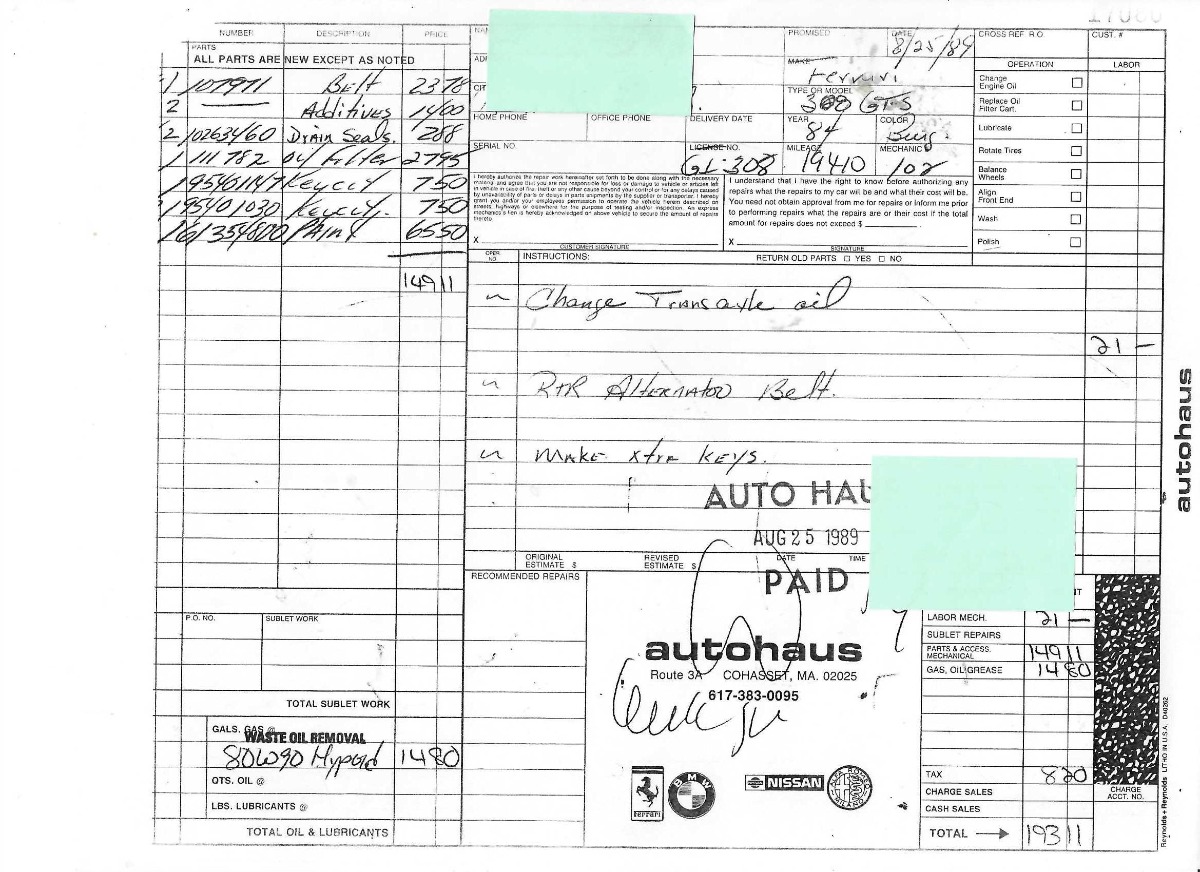 NUMBER DESCRIPTION PRICE
PARTS
ALL PARTS ARE NEW EXCEPT AS NOTED
1 107971 Belt 23 78
2 Additives 14 00
2 10263460 Drain Seals. 2 88
1 111 782 oil filter 27 95
195401147 7 50
195401030 7 50
161354800 PAint 65 50
149 11
PROMISED DATE 8/25/89
MAKE Ferrari
TYPE OR MODEL 308 GTS
HOME PHONE OFFICE PHONE DELIVERY DATE YEAR 84 COLOR
SERIAL NO. LICENSE NO. GT-308 MILEAGE 19410 MECHANIC 102
I hereby authorize the repair work hereinafter set forth to be done along with the necessary
material and agree that you are not responsible for loss or damage to vehicle or articles left
in vehicle in case of fire, theft or any other cause beyond your control or for any delays caused
by unavailability of parts or delays in parts shipments by the supplier or transporter. I hereby
grant you and/or your employees permission to operate the vehicle herein described on
streets, highways or elsewhere for the purpose of testing and/or inspection. An express
mechanic's lien is hereby acknowledged on above vehicle to secure the amount of repairs
thereto.
X
CUSTOMER SIGNATURE
I understand that I have the right to know before authorizing any
repairs what the repairs to my car will be and what their cost will be.
You need not obtain approval from me for repairs or inform me prior
to performing repairs what the repairs are or their cost if the total
amount for repairs does not exceed $
X
SIGNATURE
CROSS REF. R.O. CUST. #
OPERATION LABOR
Change Engine Oil
Replace Oil Filter Cart.
Lubricate
Rotate Tires
Balance Wheels
Align Front End
Wash
Polish
OPER. NO. INSTRUCTIONS: RETURN OLD PARTS YES NO
Change Transaxle oil
21 —
R+R Alternator Belt.
Make xtra Keys.
AUTO HAU
AUG 25 1989
PAID
ORIGINAL ESTIMATE $ REVISED ESTIMATE $ DATE TIME
RECOMMENDED REPAIRS
autohaus
Route 3A COHASSET, MA. 02025
617-383-0095
Ferrari
BMW
NISSAN
ALFA ROMEO
MILANO
P.O. NO. SUBLET WORK
TOTAL SUBLET WORK
GALS. GAS @
WASTE OIL REMOVAL
80W90 Hypoid 14 80
QTS. OIL @
LBS. LUBRICANTS @
TOTAL OIL & LUBRICANTS
LABOR MECH. 21 —
SUBLET REPAIRS
PARTS & ACCESS. MECHANICAL 149 11
GAS, OIL, GREASE 14 80
TAX 8 20
CHARGE SALES
CASH SALES
TOTAL 193 11
CHARGE ACCT. NO.
autohaus
Reynolds + Reynolds LITHO IN U.S.A. D40262